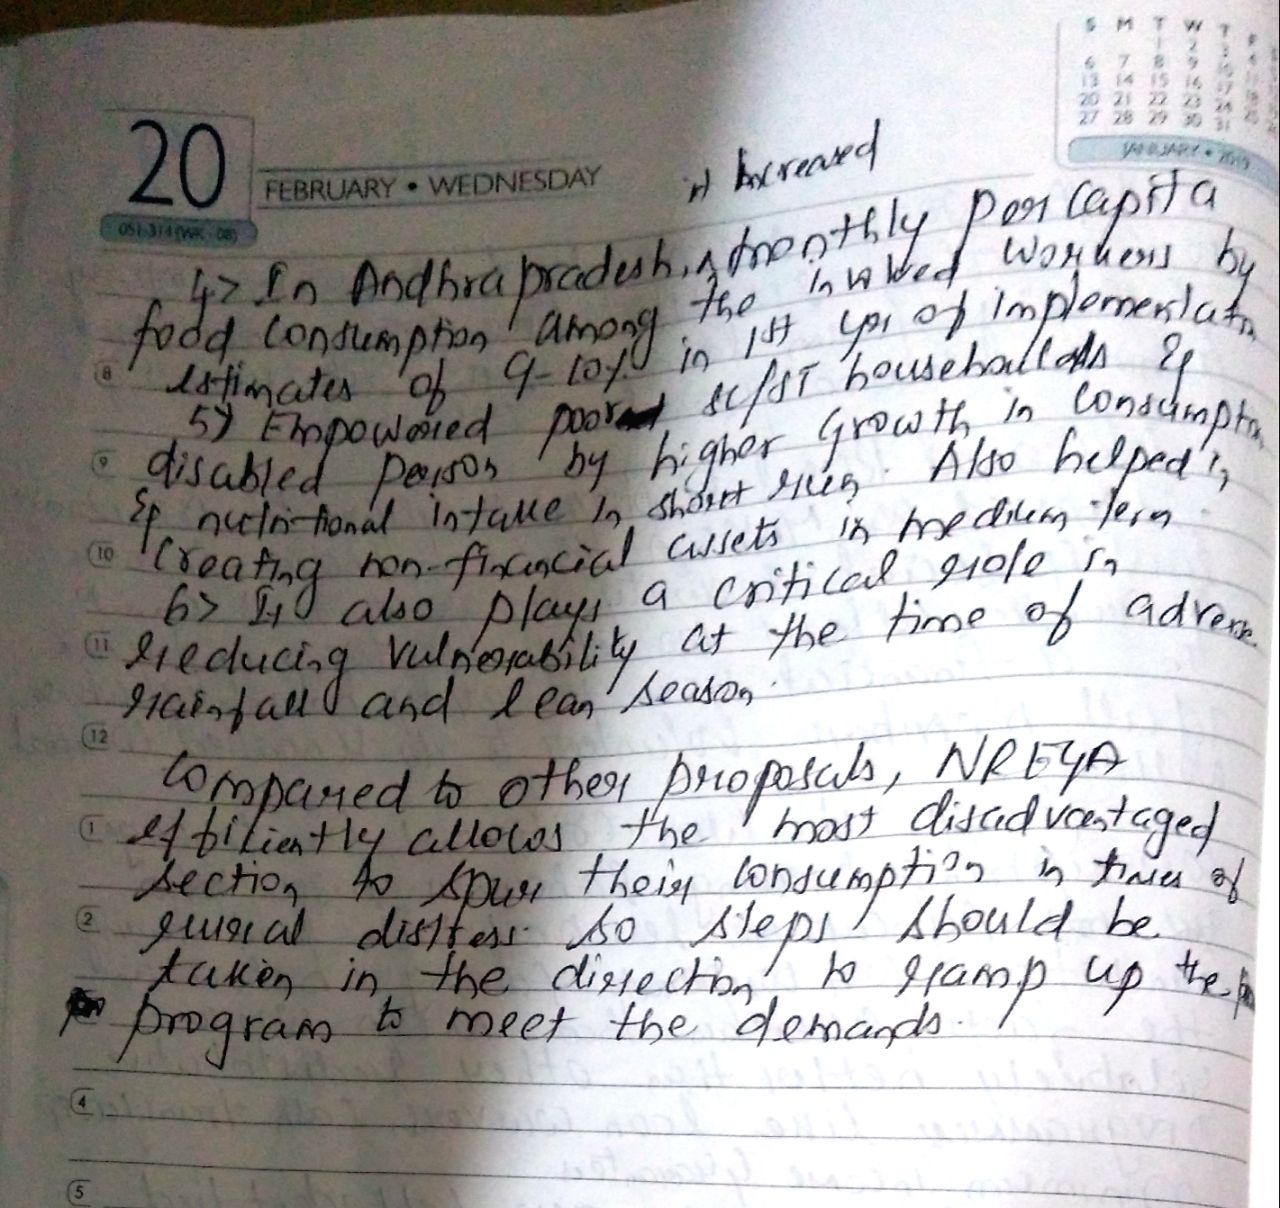 S M T W T F
1 2 3 4
6 7 8 9 10 11
13 14 15 16 17 18
20 21 22 23 24 25
27 28 29 30 31
JANUARY • 2019
20
FEBRUARY • WEDNESDAY
051-314 (WK - 08)
it increased
4> In Andhra pradesh, monthly per capita
food consumption among the involved workers by
8
estimates of 9-10% in 1st yr of implementatn
5> Empowered poor SC/ST households &
9
disabled person by higher growth in consumptn
& nutritional intake in short run. Also helped in
10
creating non-financial assets in medium term.
6> It also plays a critical role in
11
reducing vulnerability at the time of adverse
rainfall and lean season.
12
Compared to other proposals, NREGA
1
efficiently allows the most disadvantaged
section to spur their consumption in times of
2
rural distress. So steps should be
taken in the direction to ramp up the
program to meet the demands.
4
5